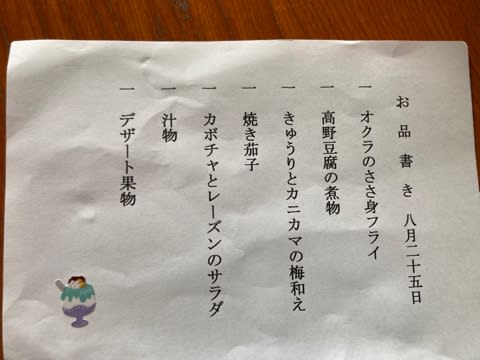 お品書き 八月二十五日
一 オクラのささ身フライ
一 高野豆腐の煮物
一 きゅうりとカニカマの梅和え
一 焼き茄子
一 カボチャとレーズンのサラダ
一 汁物
一 デザート果物